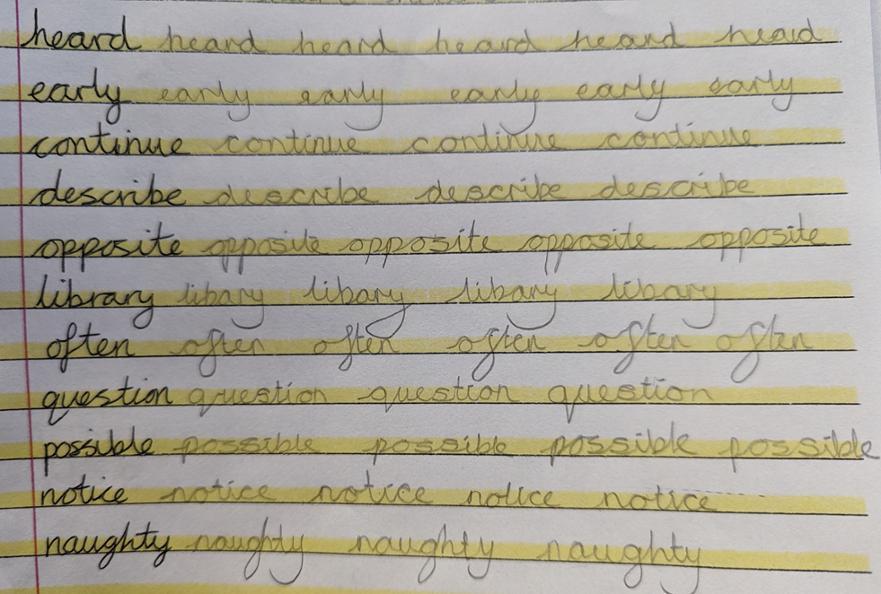 heard heard heard heard heard heard
early early early early early early
continue continue continue continue
describe describe describe describe
opposite opposite opposite opposite opposite
library libary libary libary libary
often often often often often often
question question question question
possible possible possible possible possible
notice notice notice notice notice
naughty naughty naughty naughty